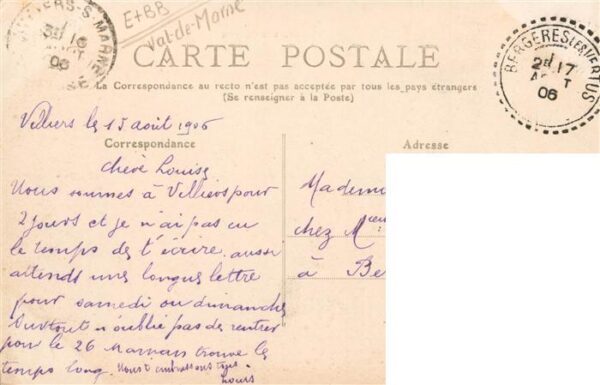 VILLIERS-S-MARNE
16
AOUT
06
E+BB
Val-de-Marne
CARTE POSTALE
La Correspondance au recto n'est pas acceptée par tous les pays étrangers
(Se renseigner à la Poste)
BERGERES LES VERTUS
2d 17
AOUT
06
Villiers le 15 août 1906
Correspondance
Adresse
chère Louise
Nous sommes à Villiers pour
2 jours et je n'ai pas eu
le temps de t'écrire. aussi
attends une longue lettre
pour samedi ou dimanche
Surtout n'oublie pas de rentrer
pour le 26 Maman trouve le
temps long. Nous t'embrassons tous
Mademoi
chez Mme
à Be